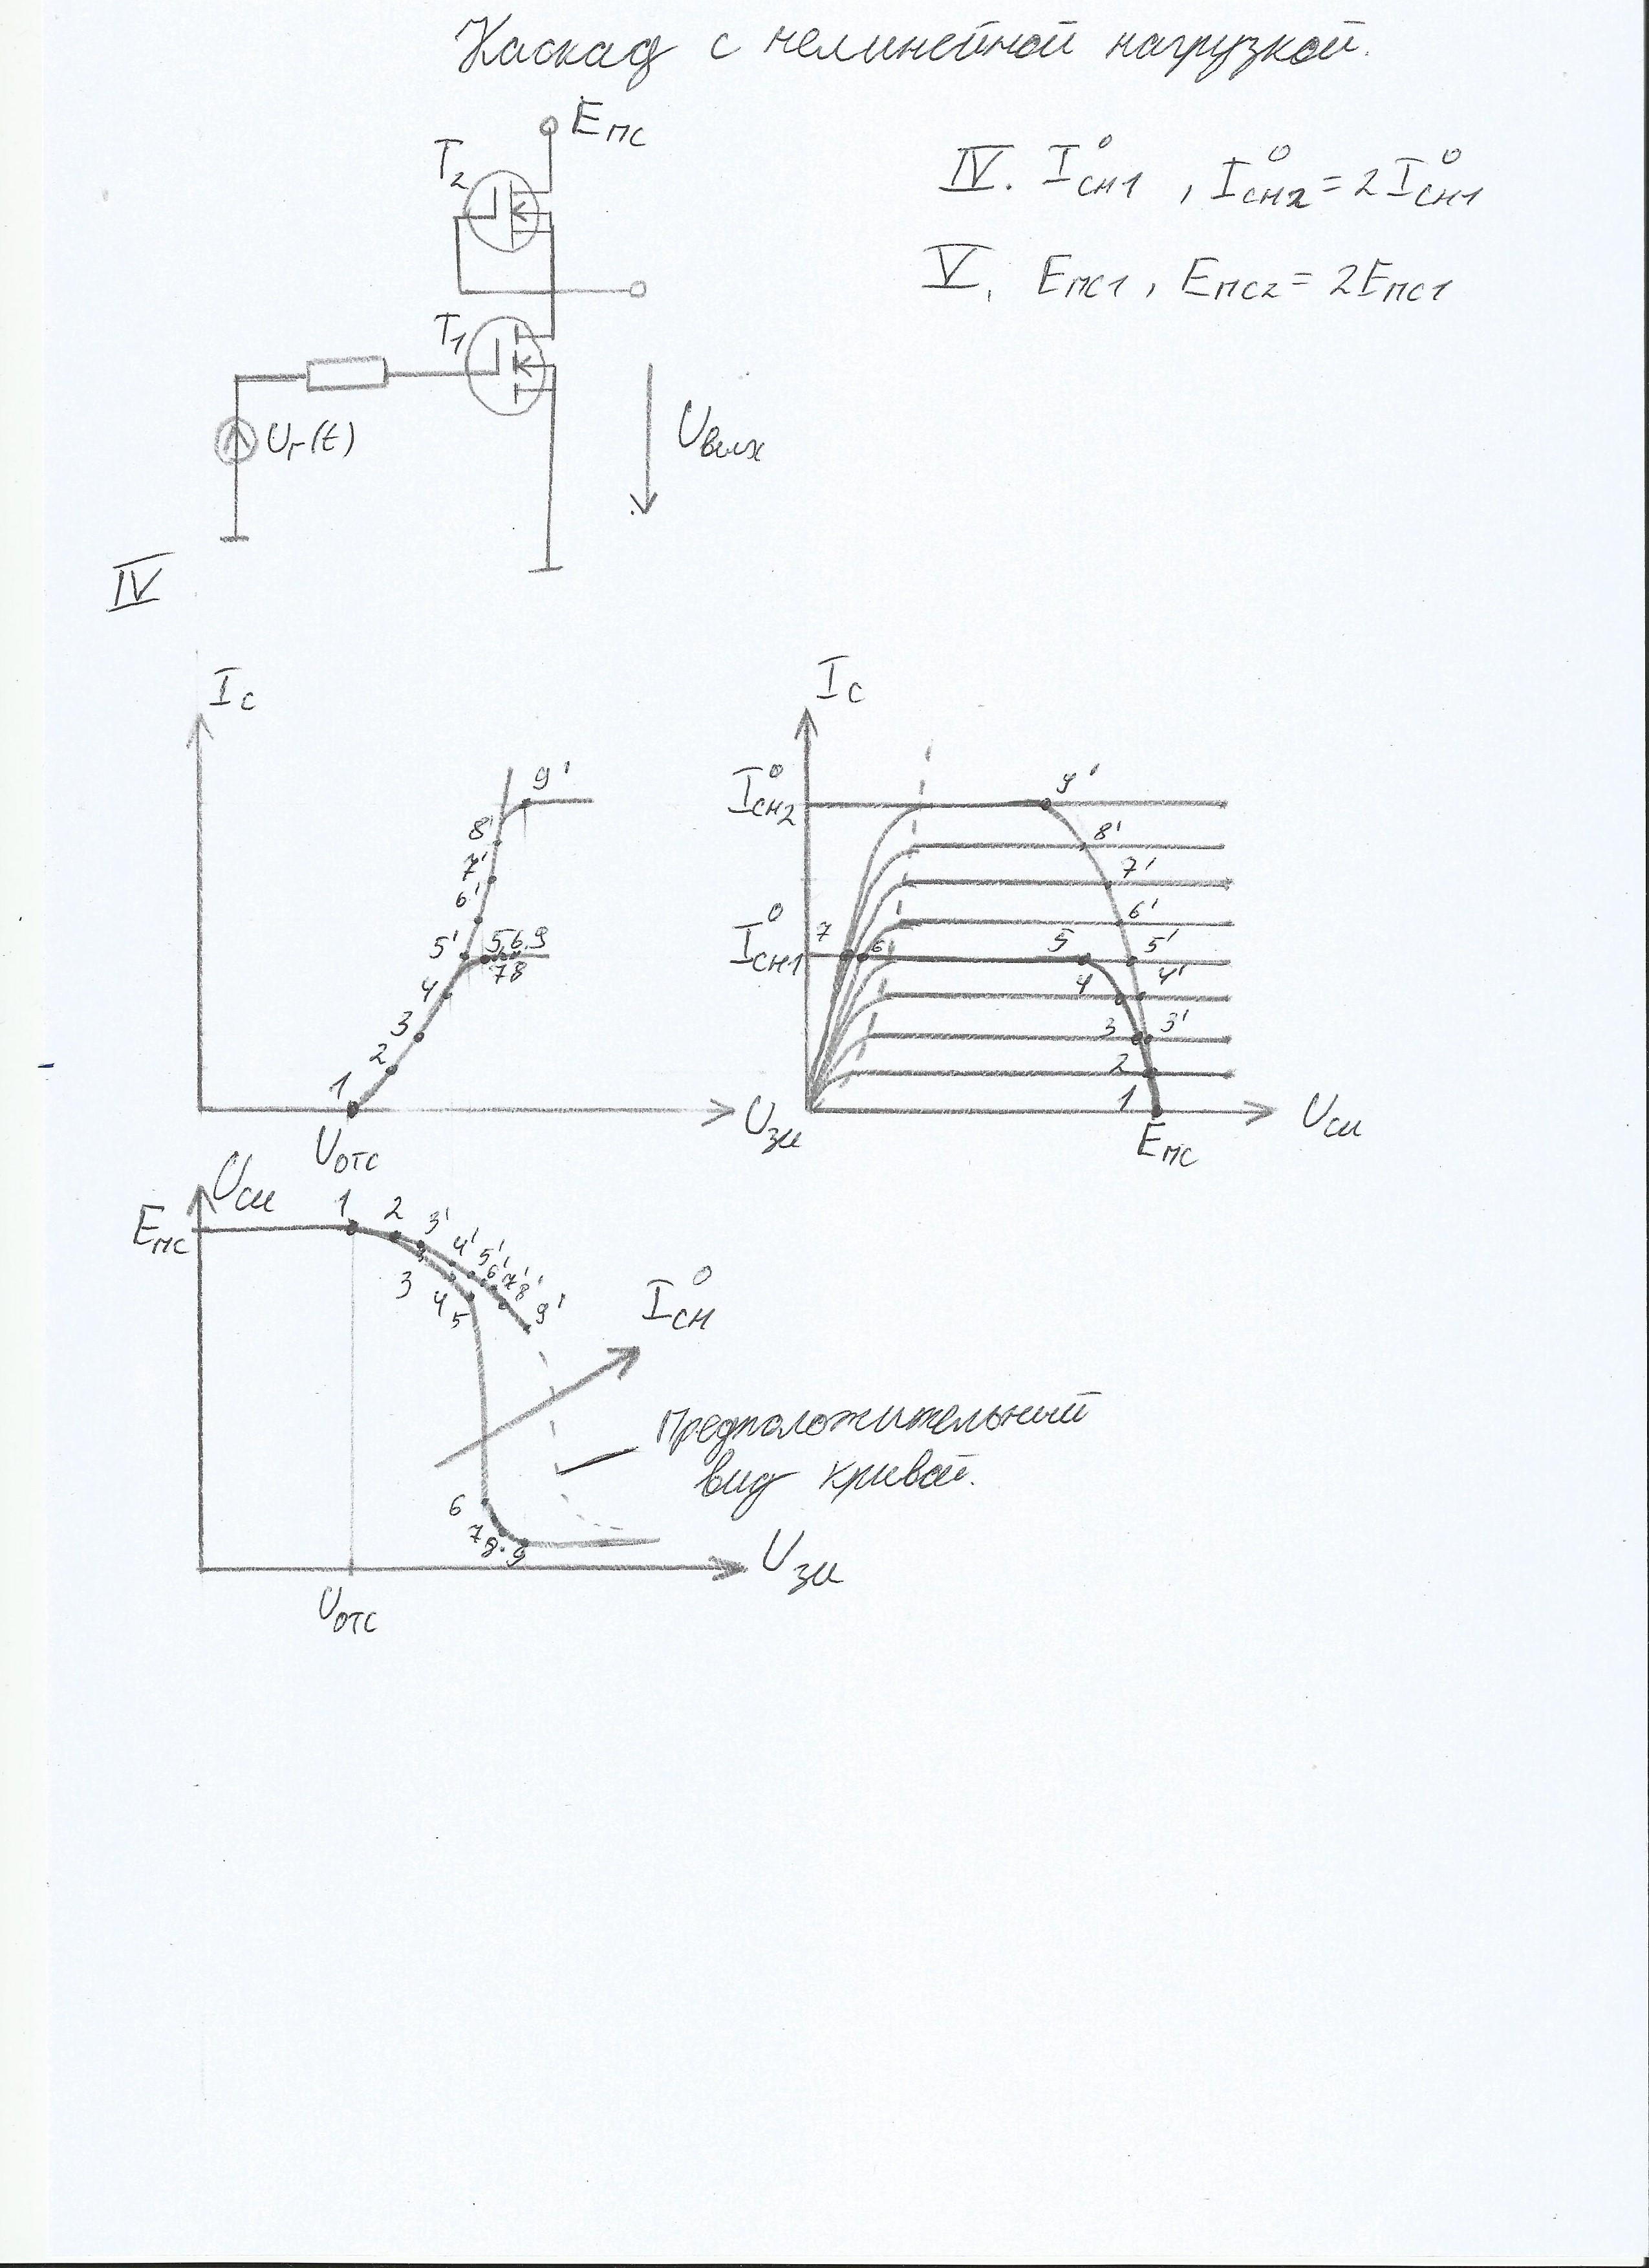 Каскад с нелинейной нагрузкой.
Eпс
T2
IV. I°сн1 , I°сн2 = 2I°сн1
V. Eпс1 , Eпс2 = 2Eпс1
T1
Uг(t)
Uвых
IV
Iс
9'
8'
7'
6'
5'
5 6 9
7 8
4
3
2
1
Uотс
Uзи
Iс
I°сн2
9'
8'
7'
6'
I°сн1
7
6
5
5'
4
4'
3
3'
2
1
Eпс
Uси
Uси
Eпс
1
2
3'
4'
5'
6'
7'
8'
9'
3
4
5
I°сн
Предположительный
вид кривой.
6
7
8
9
Uзи
Uотс